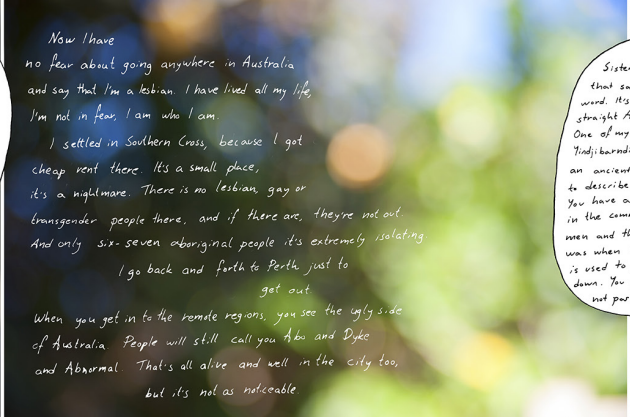 Now I have
no fear about going anywhere in Australia
and say that I'm a lesbian. I have lived all my life,
I'm not in fear, I am who I am.
I settled in Southern Cross, because I got
cheap rent there. It's a small place,
it's a nightmare. There is no lesbian, gay or
transgender people there, and if there are, they're not out.
And only six-seven aboriginal people it's extremely isolating
I go back and forth to Perth just to
get out.
When you get in to the remote regions, you see the ugly side
of Australia. People will still call you Abo and Dyke
and Abnormal. That's all alive and well in the city too,
but it's not as noticeable.
Siste
that sa
word. It's
straight A
One of my
Yindjibarndi
an ancient
to describe
You have a
in the comm
men and th
was when
is used to
down. You
not par